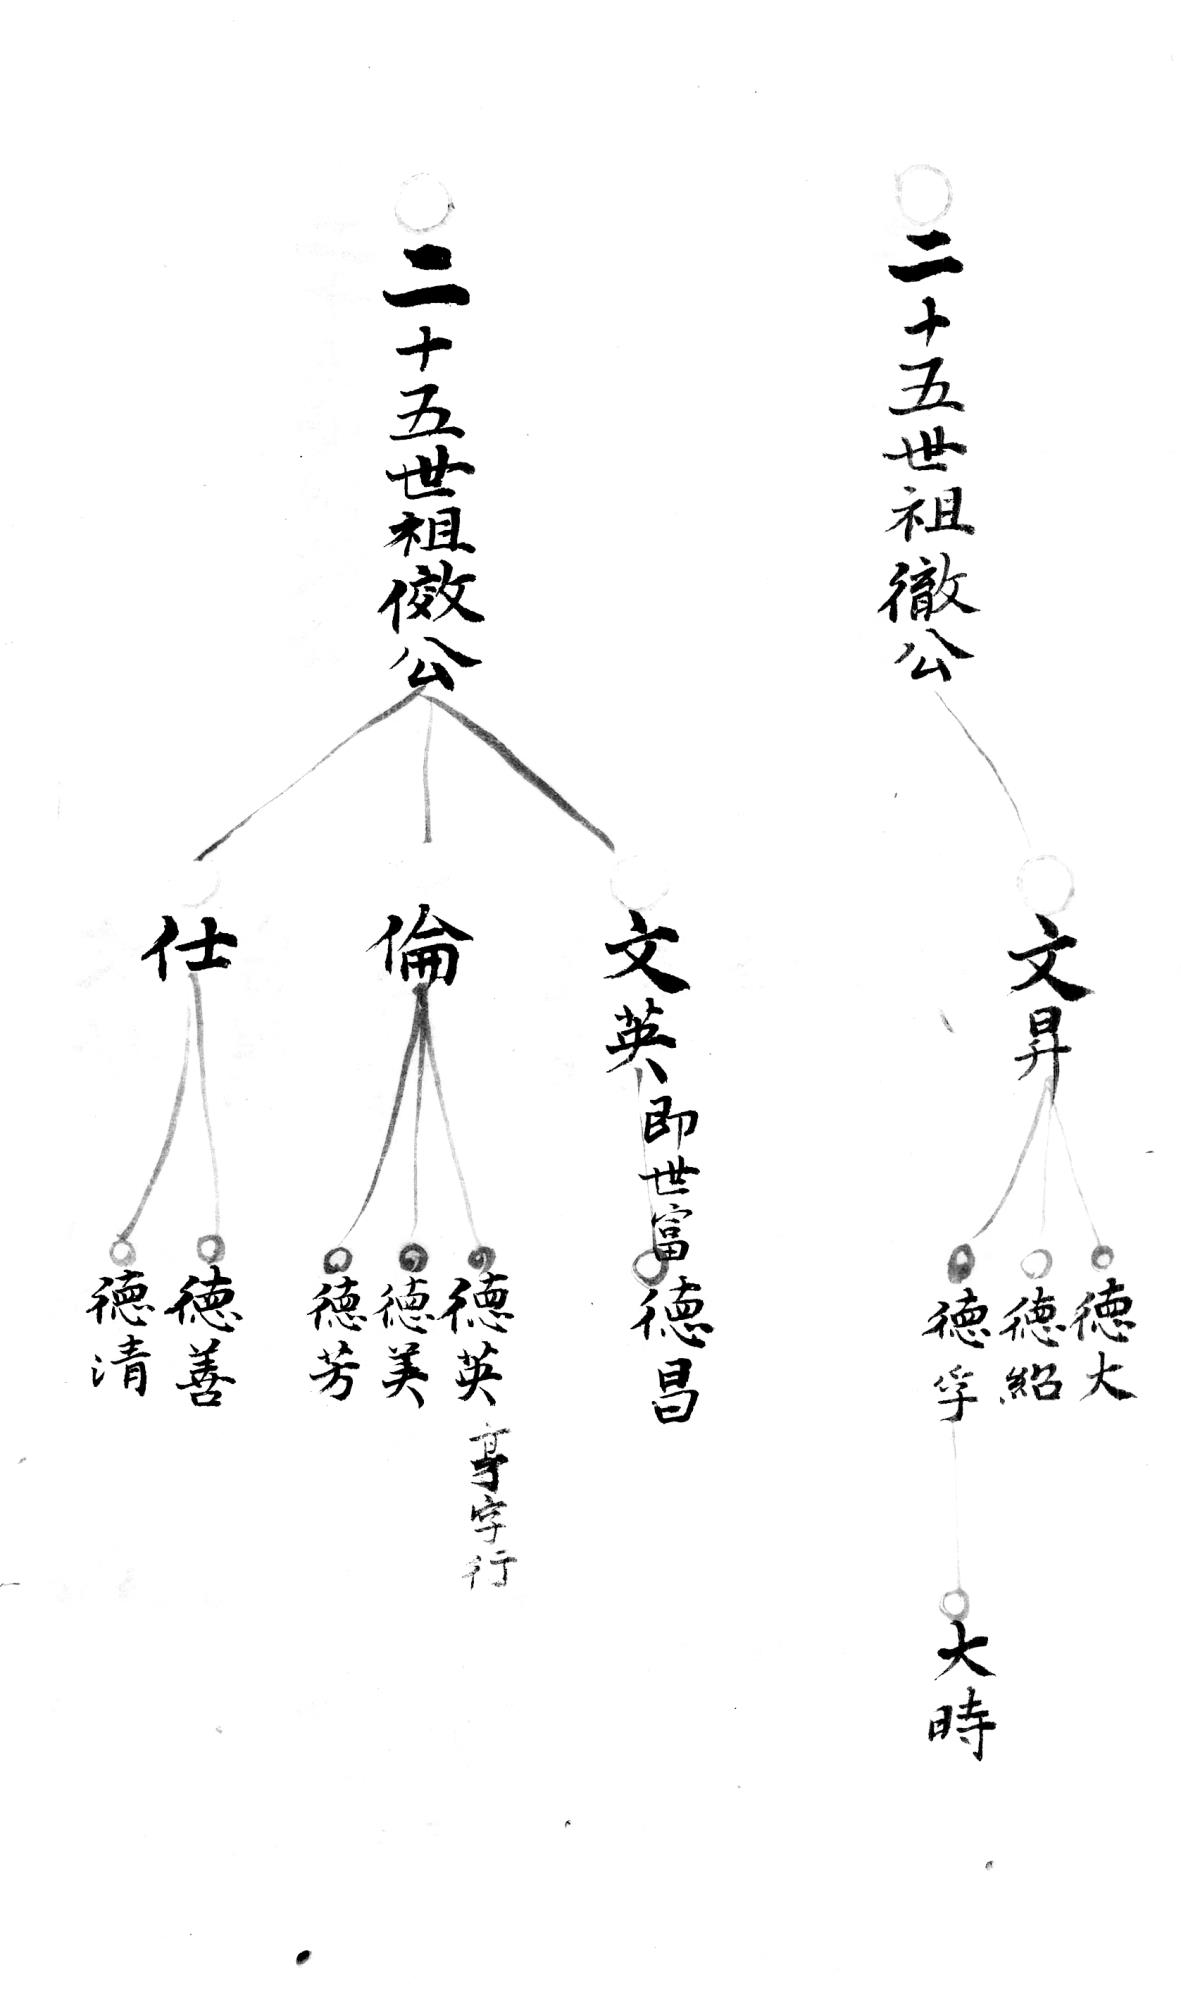 二十五世祖徹公
文昇
德大
德紹
德孚
大時
二十五世祖傚公
文英即世富
德昌
倫
德英
字行
德美
德芳
仕
德善
德清